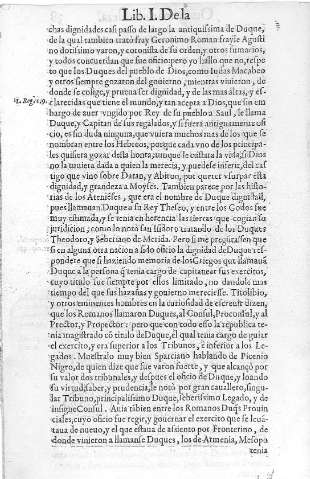 Lib. I. De la
chas dignidades casi paso de largo la antiquissima de Duque,
de la qual tambien trató fray Geronimo Roman frayle Agusti
no doctissimo varon, y coronista de su orden, y otros sumarios,
y todos concuerdan que fue oficio: pero yo hallo que no, respe
to que los Duques del pueblo de Dios, como Iudas Macabeo
y otros siempre gozaron del govierno, mientras vivieron, de
donde se colige, y prueva ser dignidad, y de las mas altas, y es-
clarecidas que tiene el mundo, y tan acepta a Dios, que sin em
bargo de auer vngido por Rey de su pueblo a Saul, le llama
Duque, y Capitan de sus regalados, y si fuera antiguamente ofi
cio, es sin duda ninguna, que viera muchos mas de los que se
nombran entre los Hebreos, porque cada vno de los principa-
les quisiera gozar desta honra, aunque le costara la vida, si Dios
no la quiera dada a quien la merecia, y puedese inferir, del cas
tigo que vino sobre Datan, y Abiron, por querer vsurpar esta
dignidad, y grandeza a Moyses. Tambien parece por las histo-
rias de los Atenieses, que era el nombre de Duque dignidad,
pues llamauan Duque a su Rey Theseo, y entre los Godos fue
muy estimada, y se tenia en herencia las tierras que cogian su
juridicion; como lo notó san Isidoro tratando de los Duques
Theodoro, y Severino de Merida. Pero si me preguntassen que
si en alguna otra nacion a sido oficio la dignidad de Duque res-
pondere que si haziendo memoria de los Griegos que llamauã
Duque a la persona q̃ tenia cargo de capitanear sus exercitos,
cuyo titulo fue siempre por ellos limitado, no dandole mas
tiempo del que sus hazañas y govierno mereciesse. Titolibio,
y otros eminentes hombres en la curiosidad de escreuir dizen,
que los Romanos llamaron Duques, al Consul, Proconsul, y al
Pretor, y Propretor: pero que con todo esso la republica te-
nia magistrado cõ titulo de Duque, el qual tenia cargo de guiar
el exercito, y era superior a los Tribunos, è inferior a los Le-
gados. Mostralo muy bien Sparciano hablando de Picenio
Nigro, de quien dize que fue varon fuerte, y que alcançó por
su valor dos tribunales, y despues el oficio de Duque, y loando
su virtud, saber, y prudencia, le nota por gran cauallero, singu-
lar Tribuno, principalissimo Duque, seuerissimo Legado, y de
insigne Consul. Auia tambien entre los Romanos Duq̃s Prouin
ciales, cuyo oficio fue regir, y gouernar el exercito que se leuã-
taua de nueuo, y el que estaua de assiento por Fronterino, de
donde vinieron a llamarse Duques, los de Armenia, Mesopo
tania